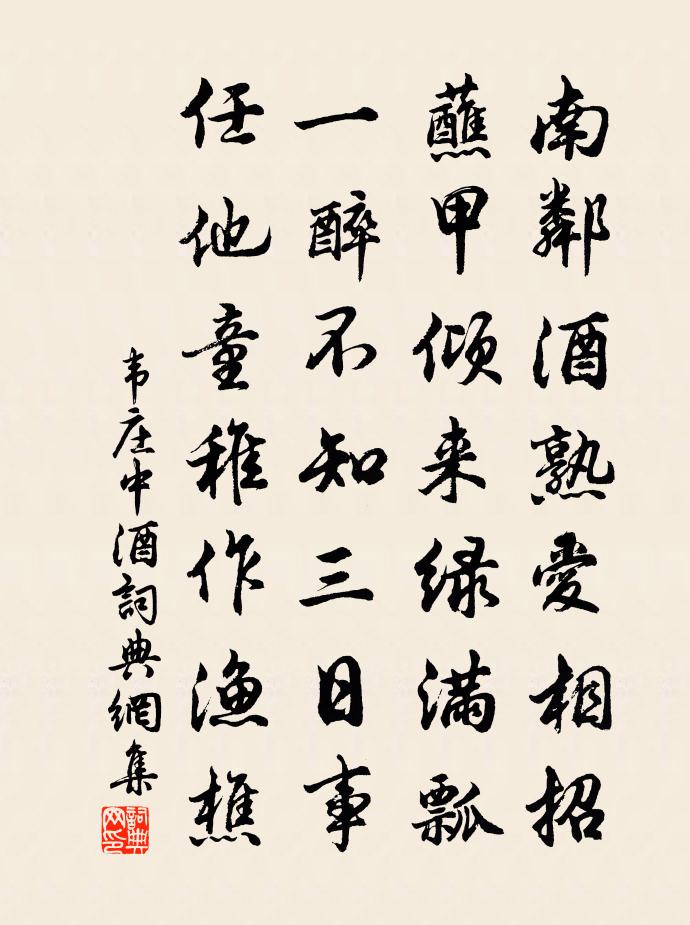 南鄰酒熟愛相招
蘸甲傾来緑滿瓢
一醉不知三日事
任他童稚作漁樵
韦庄中酒詞典網集
詞典网印